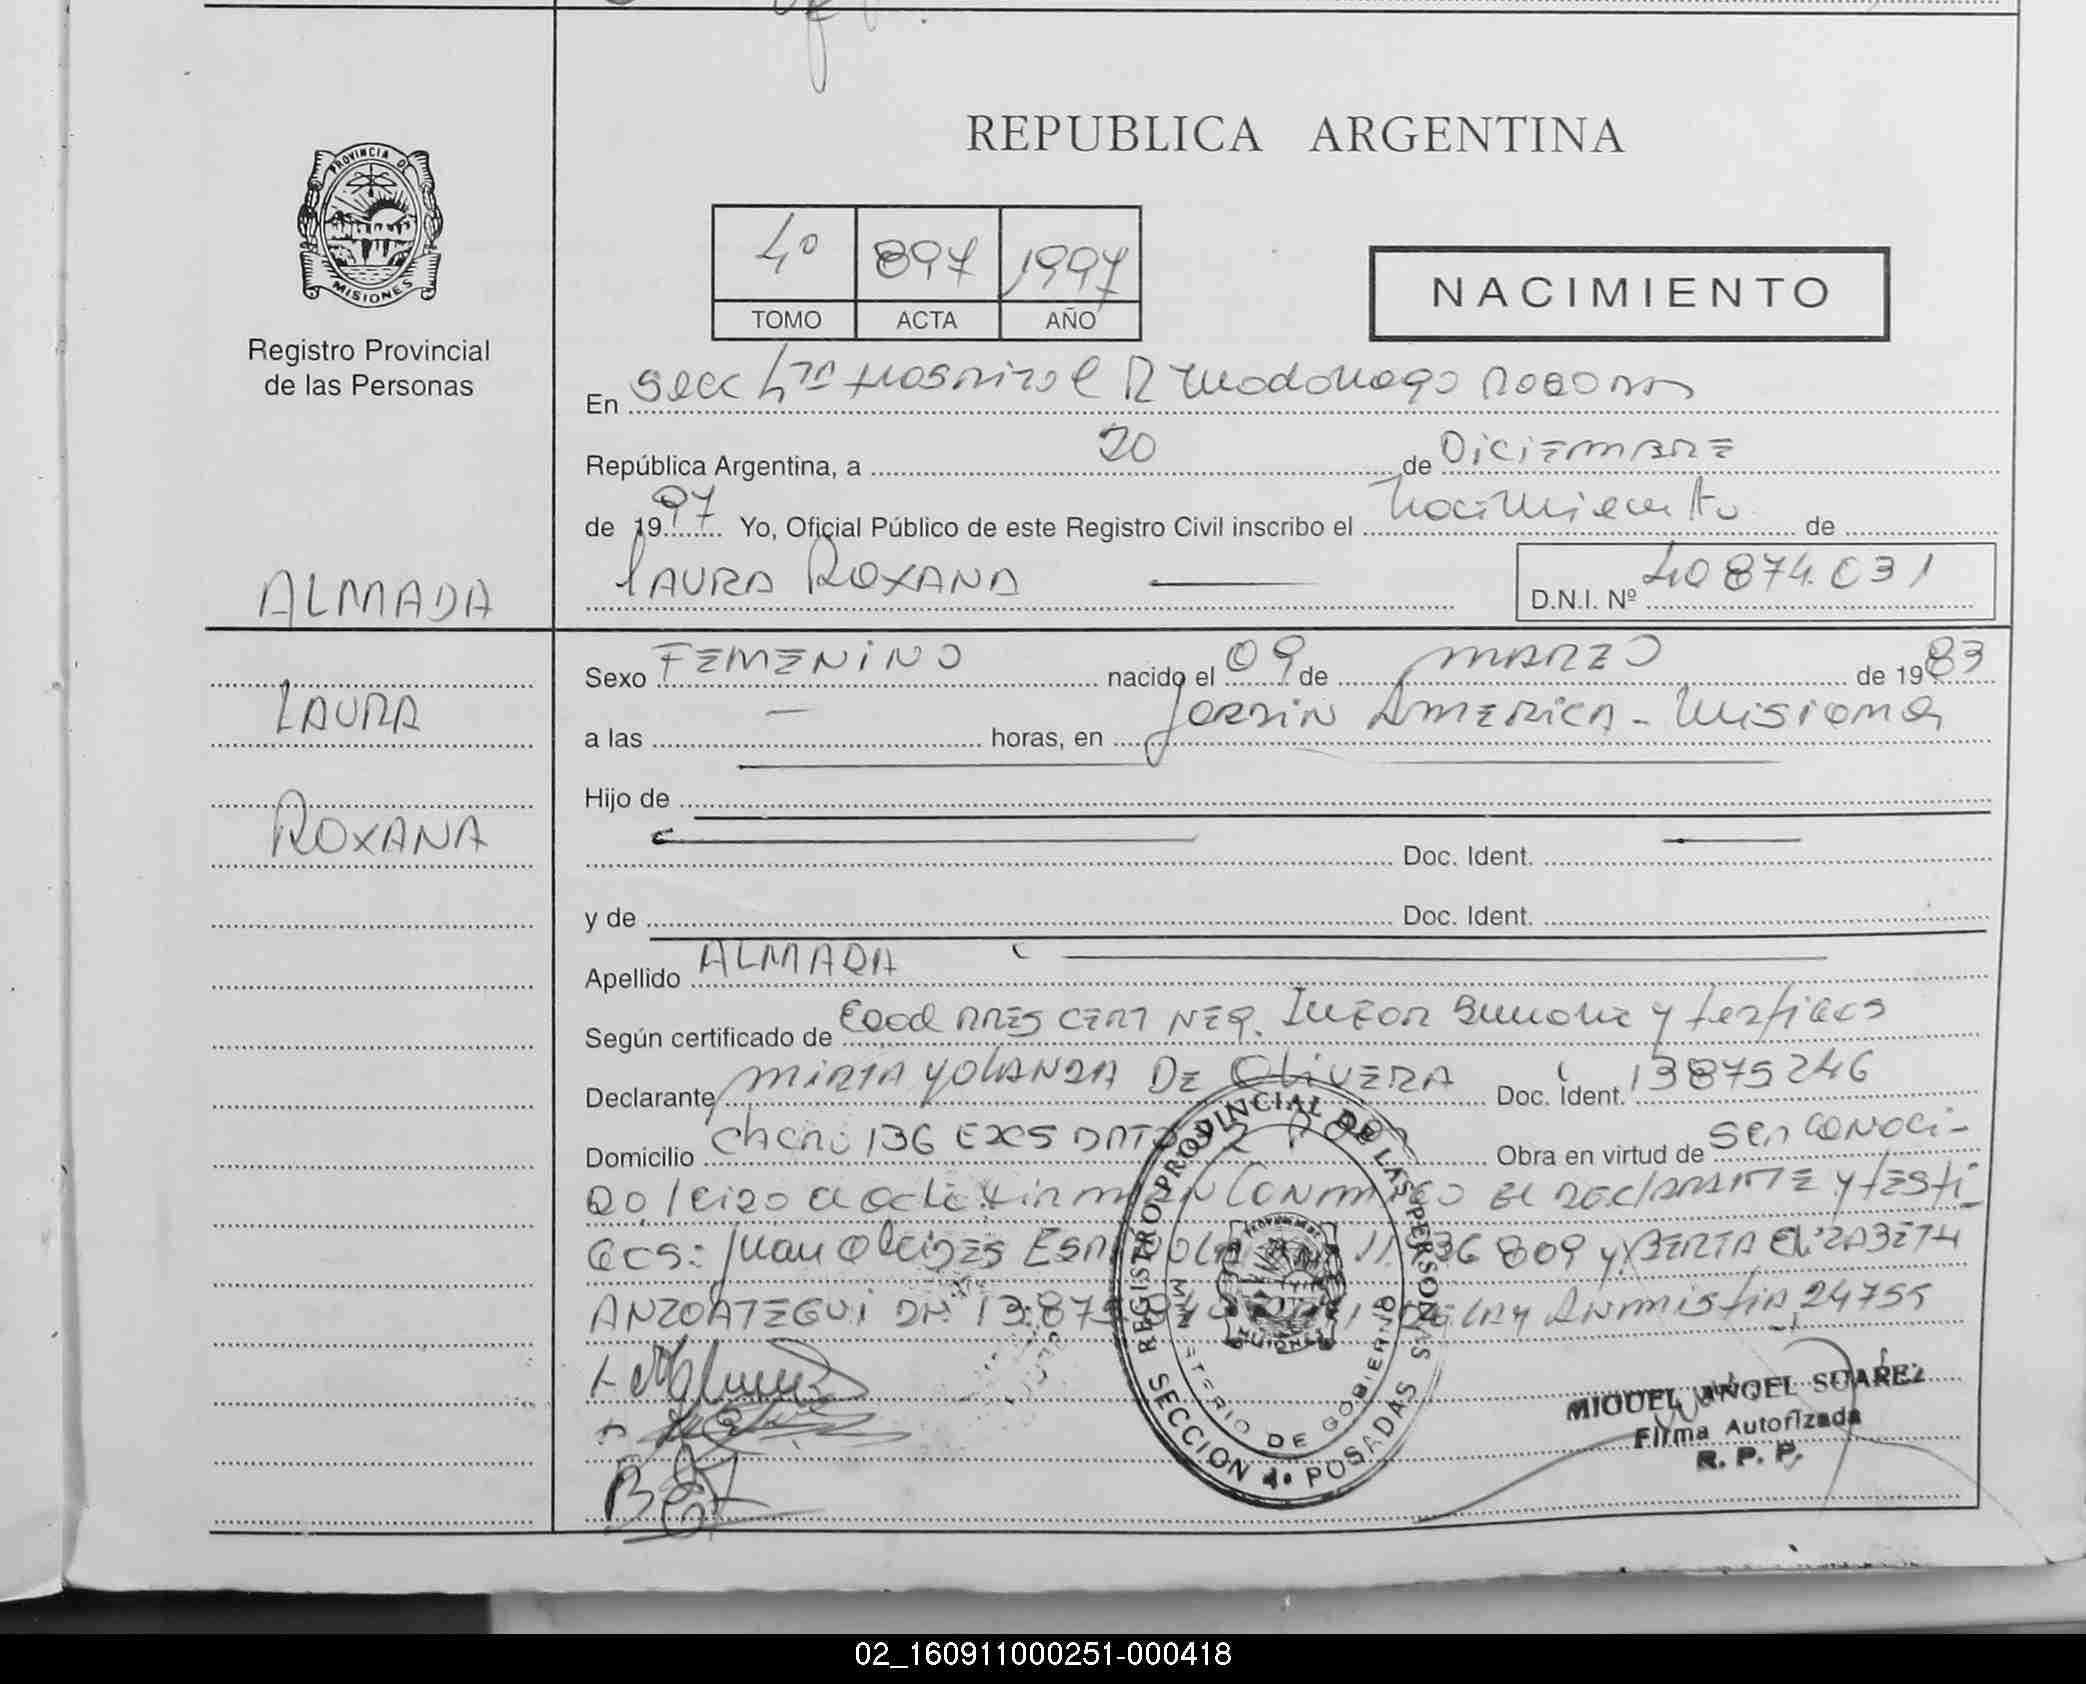 REPUBLICA ARGENTINA
PROVINCIA DE
MISIONES
Registro Provincial
de las Personas
4º 897 1997
TOMO ACTA AÑO
NACIMIENTO
En Secc 4ta Hospital R Madariaga Posadas
República Argentina, a 20 de DICIEMBRE
de 1997 Yo, Oficial Público de este Registro Civil inscribo el Nacimiento de
ALMADA
LAURA ROXANA
D.N.I. Nº 40874.031
Sexo FEMENINO nacido el 09 de MARZO de 1983
LAURA
a las — horas, en Jardin AMERICA - Misiones
ROXANA
Hijo de
Doc. Ident.
y de Doc. Ident.
Apellido ALMADA
Según certificado de CERT NEG. y testigos
Declarante MIRTA YOLANDA DE OLIVERA Doc. Ident. 13875246
Domicilio Chcra 136 Obra en virtud de ser conoci-
do leido el acta firman CONMIGO EL DECLARANTE y testi
gos: Juan 809 y BERTA ELIZABETH
ANZOATEGUI DNI 13.875 LEY AMNISTIA 24755
REGISTRO PROVINCIAL DE LAS PERSONAS
MINISTERIO DE GOBIERNO
MISIONES
SECCION 4º POSADAS
MIGUEL ANGEL SUAREZ
Firma Autorizada
R. P. P.
02_160911000251-000418